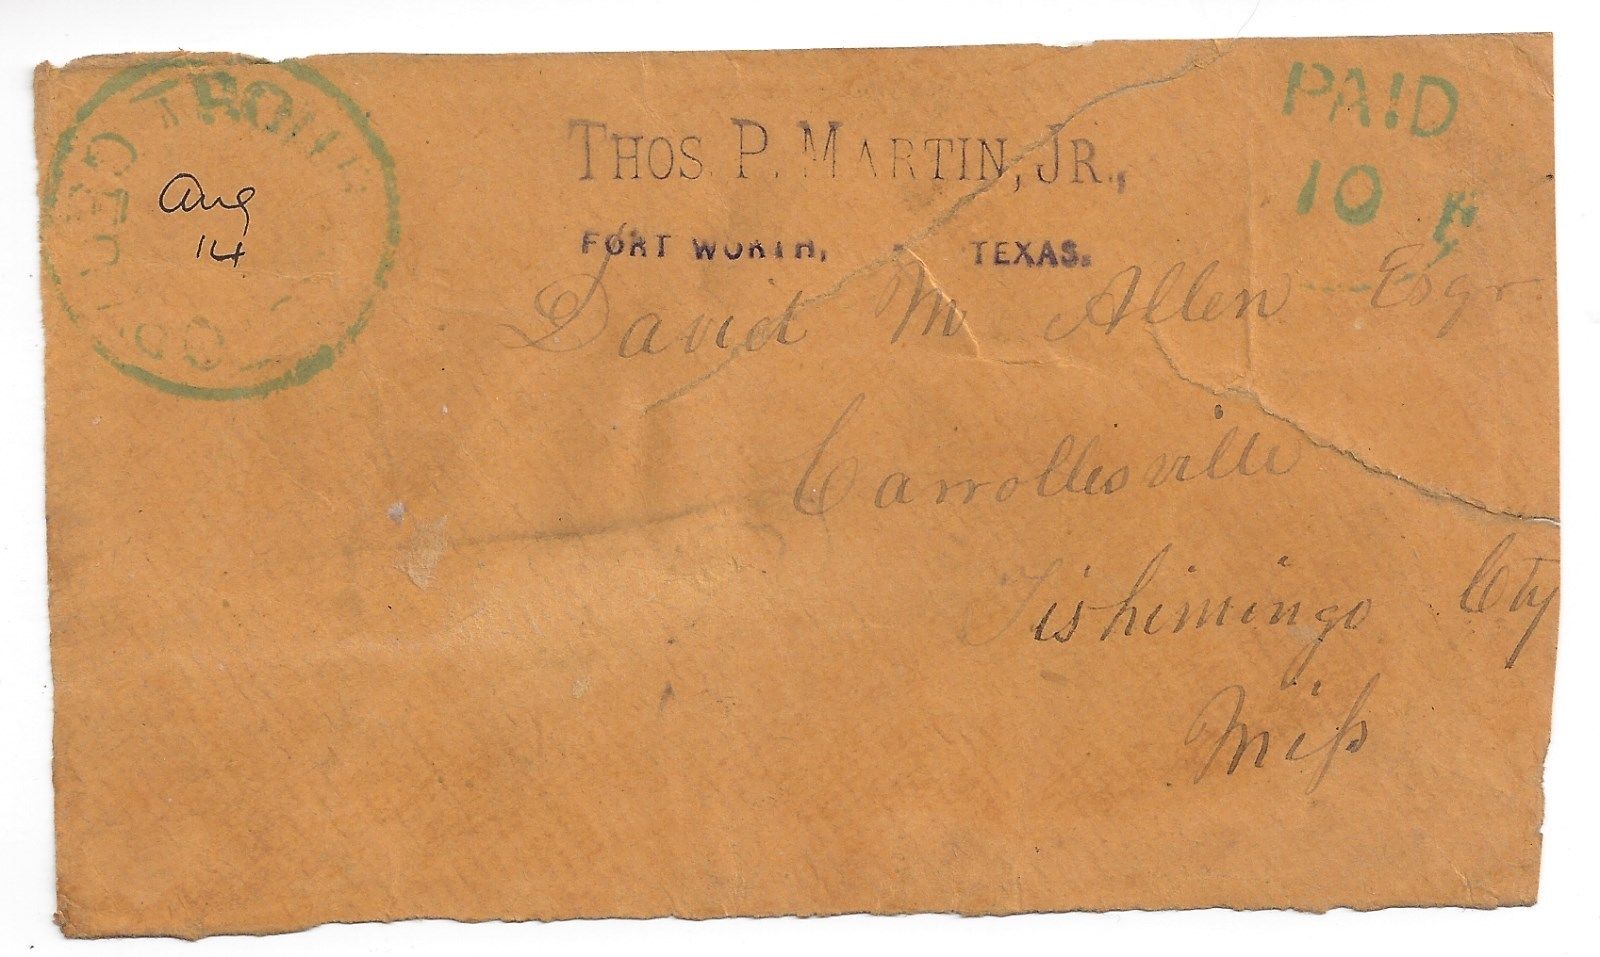 Aug
14
THOS. P. MARTIN, JR.,
FORT WORTH, TEXAS.
PAID
10
David M Allen Esqr
Carrollesville
Tishimingo Cty
Miss